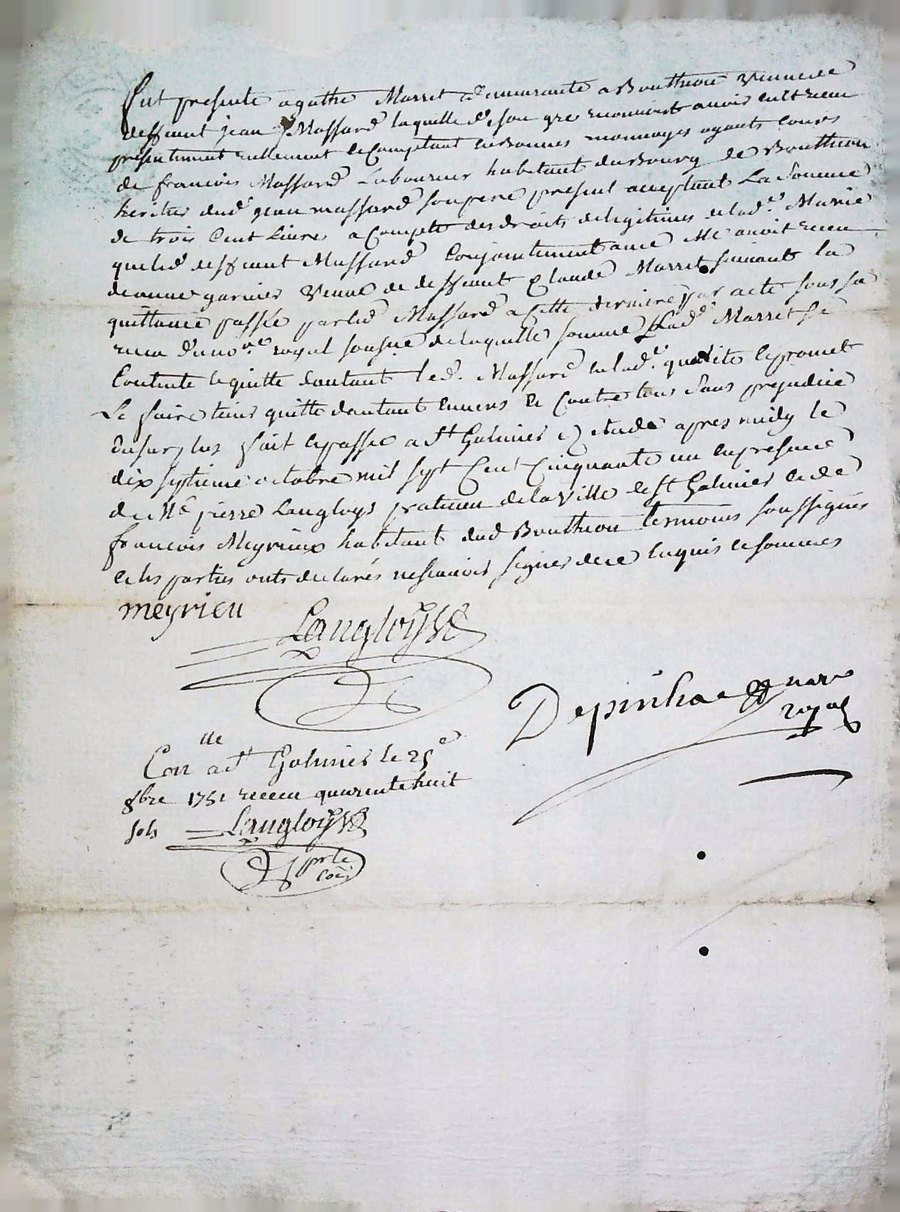 fut presente agathe Marret demeurante a Boutheon veuve de
deffunt jean Massard laquelle de son gre reconnoit avoir eu et receu
presentement reellement et comptant en bonnes monnoyes ayants cours
de francois Massard Laboureur habitant du Bourg de Bouthon
heritier dud jean massard son pere present acceptant La Somme
de trois Cent Livres a Compte des droits de legitimes de lad.e Marie
que led deffunt Massard Conjointement avec Me avoit receu
jeanne garnier veuve de deffunt Claude Marret suivant la
quittance passée par led Massard a cette derniere par acte sous sa
receu d'un no.re royal soussne de laquelle somme Lad.e Marret se
Contente et quitte d'autant led. Massard en lad.e qualite et promet
Le faire tenir quitte d'autant envers et Contre tous Sans prejudice
du surplus fait et passé a St Galmier etude apres midy le
dix septieme octobre mil sept Cent Cinquante un en presence
de Me pierre Langloys praticien de la Ville de St Galmier et de
francois Meyrieux habitant dud Bouthion temoins soussignés
et les parties onts declarés ne scavoir signer de ce enquis et sommes
meyrieu Langloys
Depinhac nore
royal
Con.lle a St Galmier le 25e
8bre 1751 receu quarente huit
sols Langloys
pr le
Con.